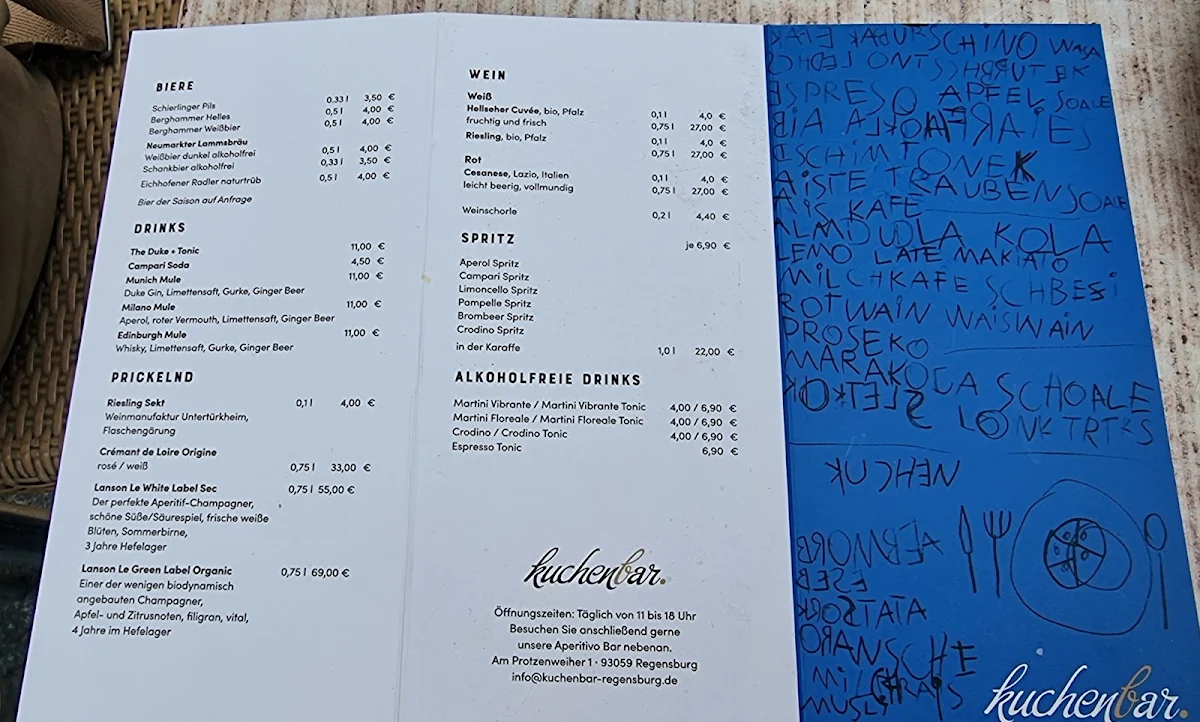 BIERE
Schierlinger Pils 0.33 l 3,50 €
Berghammer Helles 0,5 l 4,00 €
Berghammer Weißbier 0,5 l 4,00 €
Neumarkter Lammsbräu
Weißbier dunkel alkoholfrei 0,5 l 4,00 €
Schankbier alkoholfrei 0,33 l 3,50 €
Eichhofener Radler naturtrüb 0,5 l 4,00 €
Bier der Saison auf Anfrage
DRINKS
The Duke + Tonic 11,00 €
Campari Soda 4,50 €
Munich Mule 11,00 €
Duke Gin, Limettensaft, Gurke, Ginger Beer
Milano Mule 11,00 €
Aperol, roter Vermouth, Limettensaft, Ginger Beer
Edinburgh Mule 11,00 €
Whisky, Limettensaft, Gurke, Ginger Beer
PRICKELND
Riesling Sekt 0,1 l 4,00 €
Weinmanufaktur Untertürkheim,
Flaschengärung
Crémant de Loire Origine
rosé / weiß 0,75 l 33,00 €
Lanson Le White Label Sec 0,75 l 55,00 €
Der perfekte Aperitif-Champagner,
schöne Süße/Säurespiel, frische weiße
Blüten, Sommerbirne,
3 Jahre Hefelager
Lanson Le Green Label Organic 0,75 l 69,00 €
Einer der wenigen biodynamisch
angebauten Champagner,
Apfel- und Zitrusnoten, filigran, vital,
4 Jahre im Hefelager
WEIN
Weiß
Hellseher Cuvée, bio, Pfalz 0,1 l 4,0 €
fruchtig und frisch 0,75 l 27,00 €
Riesling, bio, Pfalz 0,1 l 4,0 €
0,75 l 27,00 €
Rot
Cesanese, Lazio, Italien 0,1 l 4,0 €
leicht beerig, vollmundig 0,75 l 27,00 €
Weinschorle 0,2 l 4,40 €
SPRITZ je 6,90 €
Aperol Spritz
Campari Spritz
Limoncello Spritz
Pampelle Spritz
Brombeer Spritz
Crodino Spritz
in der Karaffe 1,0 l 22,00 €
ALKOHOLFREIE DRINKS
Martini Vibrante / Martini Vibrante Tonic 4,00 / 6,90 €
Martini Floreale / Martini Floreale Tonic 4,00 / 6,90 €
Crodino / Crodino Tonic 4,00 / 6,90 €
Espresso Tonic 6,90 €
kuchenbar.
Öffnungszeiten: Täglich von 11 bis 18 Uhr
Besuchen Sie anschließend gerne
unsere Aperitivo Bar nebenan.
Am Protzenweiher 1 · 93059 Regensburg
info@kuchenbar-regensburg.de
SCHINO
APFEL SOALE
TRAUBENSOALE
AIS KAFE
ALMDUDLA KOLA
LEMO LATE MAKIATO
MILCHKAFE SCHBESI
ROTWAIN WAISWAIN
PROSEKO
MARAKOUA SCHOALE
LONK TRTKS
KUCHEN
TATA
ORANSCHE
MILCHRAIS
MUSLI
kuchenbar.